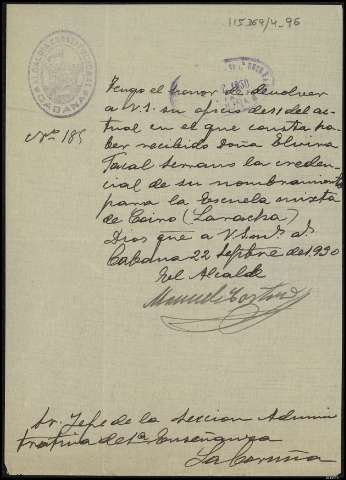 115369/4-96
ALCALDIA CONSTITUCIONAL
CABANA
Nº 185
Tengo el honor de devolver
a V.S. su oficio del del ac-
tual en el que consta ha-
ber recibido Doña Elvira
Toxal Serrano la creden-
cial de su nombramiento
para la Escuela mixta
de Coiro (Laracha)
Dios gue a V.S. ms. as.
Cabana 22 Sepbre de 1930
El Alcalde
Manuel
Sr. Jefe de la Seccion Adminis
trativa de 1ª Enseñanza
La Coruña